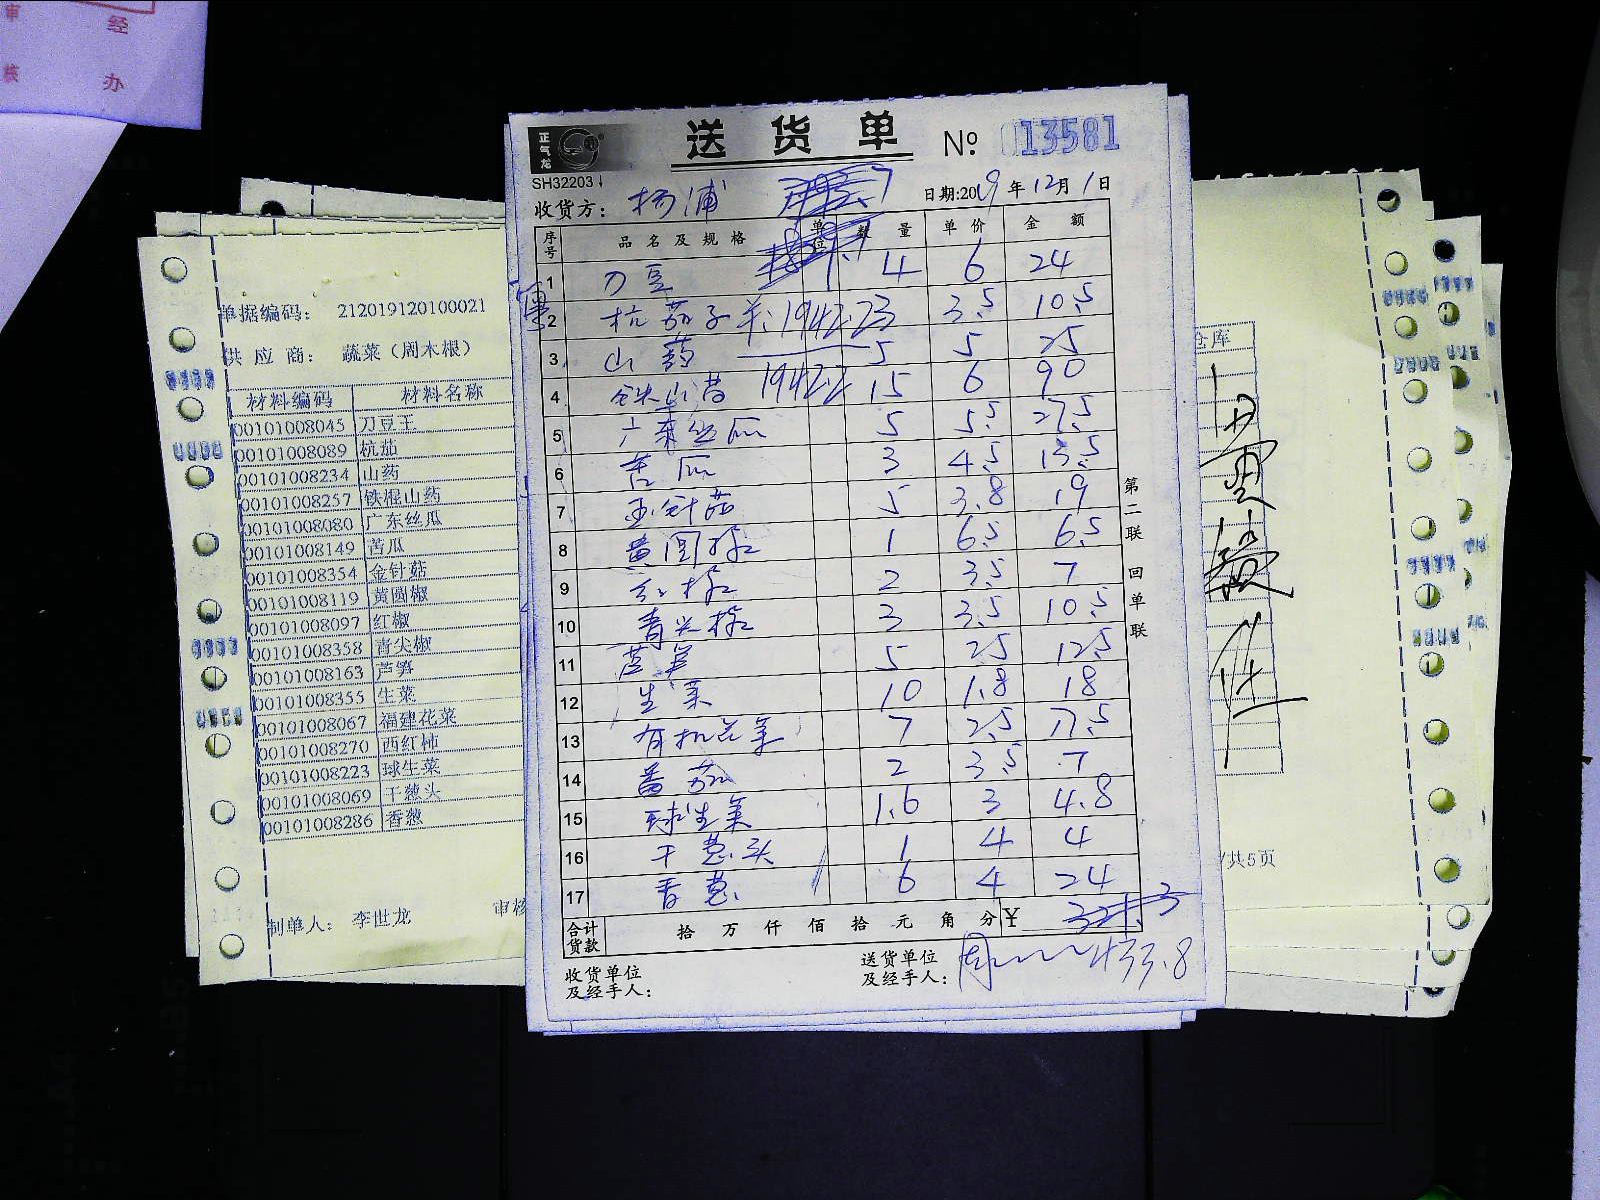 审 经
核 办
正气龙
送货单 № 013581
SH32203
收货方: 杨浦 日期:2019年12月1日
序号 品名及规格 单位 数量 单价 金额
1 刀豆 4 6 24
2 杭茄子 3 3.5 10.5
羊:1942.2
3 山药 5 5 25
4 铁山药 15 6 90
1942.2
5 广东丝瓜 5 5.5 27.5
6 苦瓜 3 4.5 13.5
7 金针菇 5 3.8 19
8 黄圆椒 1 6.5 6.5
9 红椒 2 3.5 7
10 青尖椒 3 3.5 10.5
11 芦笋 5 25 12.5
12 生菜 10 1.8 18
13 有机花菜 7 2.5 17.5
14 番茄 2 3.5 7
15 球生菜 1.6 3 4.8
16 干葱头 1 4 4
17 香葱 6 4 24
合计货款 拾 万 仟 佰 拾 元 角 分 ¥
433.8
收货单位及经手人:
送货单位及经手人: 周
第二联 回单联
单据编码: 212019120100021
供应商: 蔬菜（周木根）
材料编码 材料名称
00101008045 刀豆王
00101008089 杭茄
00101008234 山药
00101008257 铁棍山药
00101008080 广东丝瓜
00101008149 苦瓜
00101008354 金针菇
00101008119 黄圆椒
00101008097 红椒
00101008358 青尖椒
00101008163 芦笋
00101008355 生菜
00101008067 福建花菜
00101008270 西红柿
00101008223 球生菜
00101008069 干葱头
00101008286 香葱
制单人: 李世龙 审核
仓库
/共5页